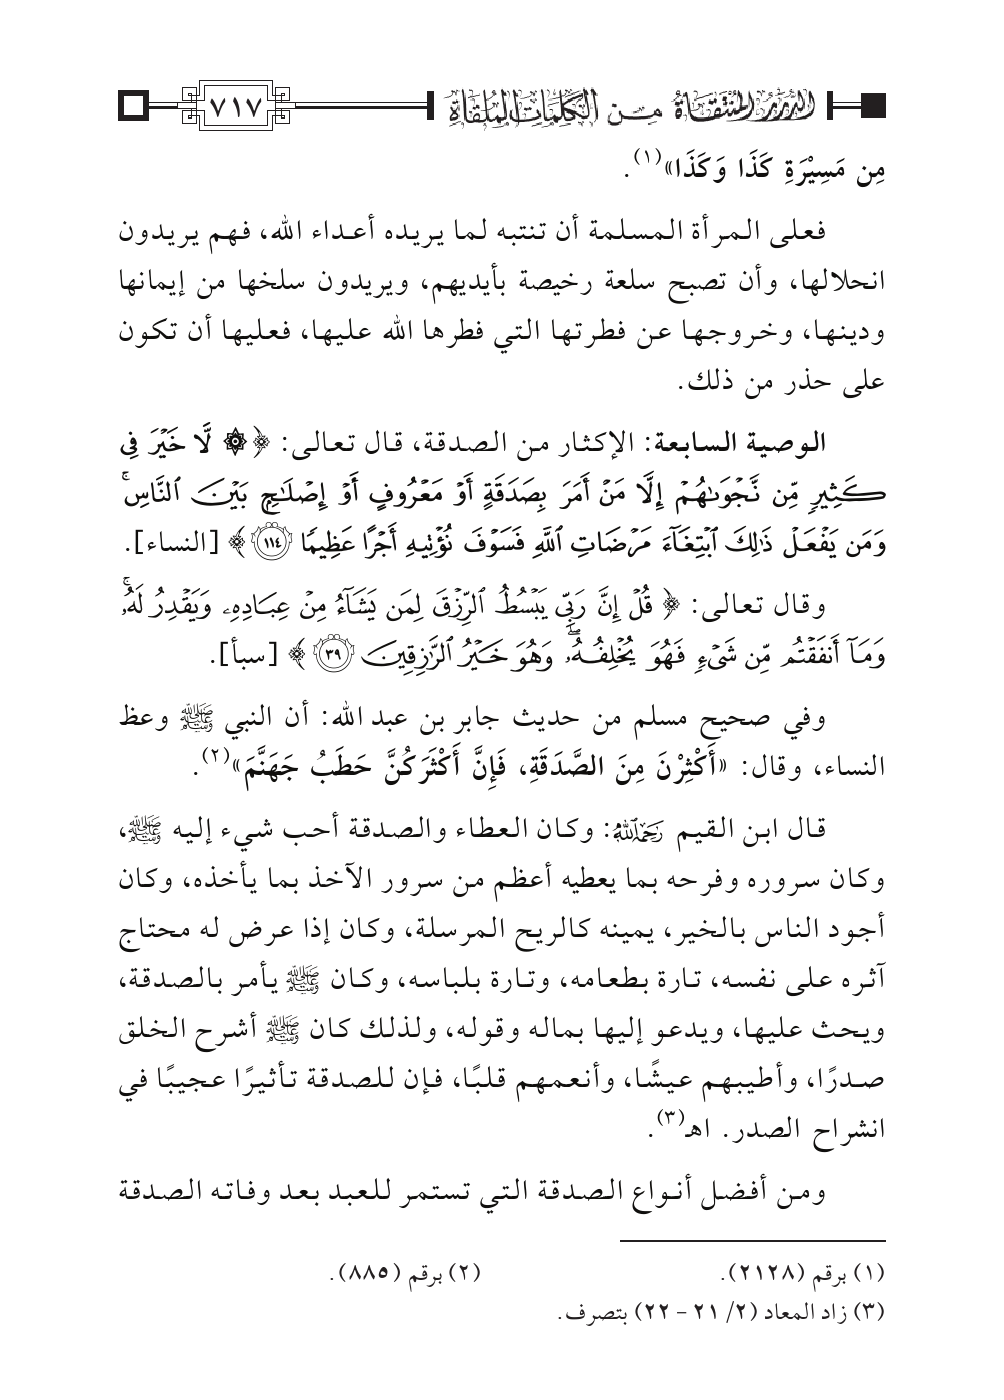 الدرر المنتقاة من الكلمات الملقاة ٧١٧
مِن مَسِيْرَةِ كَذَا وَكَذَا»(١).
فعلى المرأة المسلمة أن تنتبه لما يريده أعداء الله، فهم يريدون
انحلالها، وأن تصبح سلعة رخيصة بأيديهم، ويريدون سلخها من إيمانها
ودينها، وخروجها عن فطرتها التي فطرها الله عليها، فعليها أن تكون
على حذر من ذلك.
الوصية السابعة: الإكثار من الصدقة، قال تعالى: ﴿ ۞ لَّا خَيْرَ فِى
كَثِيرٍ مِّن نَّجْوَىٰهُمْ إِلَّا مَنْ أَمَرَ بِصَدَقَةٍ أَوْ مَعْرُوفٍ أَوْ إِصْلَٰحٍ بَيْنَ ٱلنَّاسِ ۚ
وَمَن يَفْعَلْ ذَٰلِكَ ٱبْتِغَآءَ مَرْضَاتِ ٱللَّهِ فَسَوْفَ نُؤْتِيهِ أَجْرًا عَظِيمًا ١١٤ ﴾ [النساء].
وقال تعالى: ﴿ قُلْ إِنَّ رَبِّى يَبْسُطُ ٱلرِّزْقَ لِمَن يَشَآءُ مِنْ عِبَادِهِۦ وَيَقْدِرُ لَهُۥ ۚ
وَمَآ أَنفَقْتُم مِّن شَىْءٍ فَهُوَ يُخْلِفُهُۥ ۖ وَهُوَ خَيْرُ ٱلرَّٰزِقِينَ ٣٩ ﴾ [سبأ].
وفي صحيح مسلم من حديث جابر بن عبد الله: أن النبي ﷺ وعظ
النساء، وقال: «أَكْثِرْنَ مِنَ الصَّدَقَةِ، فَإِنَّ أَكْثَرَكُنَّ حَطَبُ جَهَنَّمَ»(٢).
قال ابن القيم رَحِمَهُ اللَّهُ: وكان العطاء والصدقة أحب شيء إليه ﷺ،
وكان سروره وفرحه بما يعطيه أعظم من سرور الآخذ بما يأخذه، وكان
أجود الناس بالخير، يمينه كالريح المرسلة، وكان إذا عرض له محتاج
آثره على نفسه، تارة بطعامه، وتارة بلباسه، وكان ﷺ يأمر بالصدقة،
ويحث عليها، ويدعو إليها بماله وقوله، ولذلك كان ﷺ أشرح الخلق
صدرًا، وأطيبهم عيشًا، وأنعمهم قلبًا، فإن للصدقة تأثيرًا عجيبًا في
انشراح الصدر. اهـ(٣).
ومن أفضل أنواع الصدقة التي تستمر للعبد بعد وفاته الصدقة
(١) برقم (٢١٢٨). (٢) برقم (٨٨٥).
(٣) زاد المعاد (٢/ ٢١ - ٢٢) بتصرف.